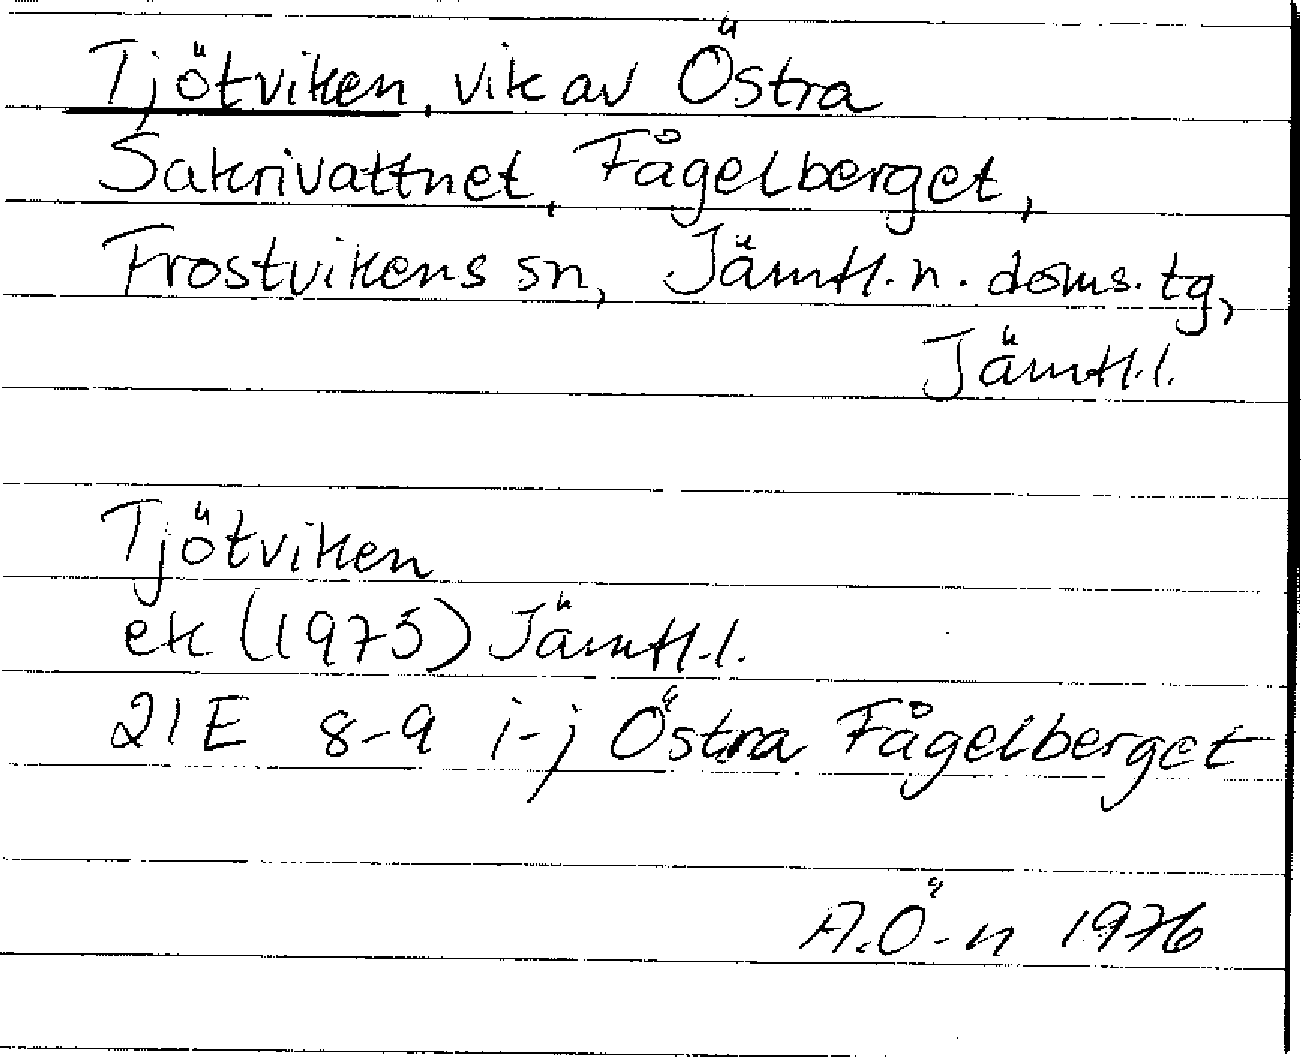 Tjötviken, vik av Östra
Sakrivattnet, Fågelberget,
Frostvikens sn, Jämtl. n. doms. tg,
Jämtl. l.
Tjötviken
ek (1975) Jämtl. l.
21E 8-9 i-j Östra Fågelberget
A.Ö-n 1976